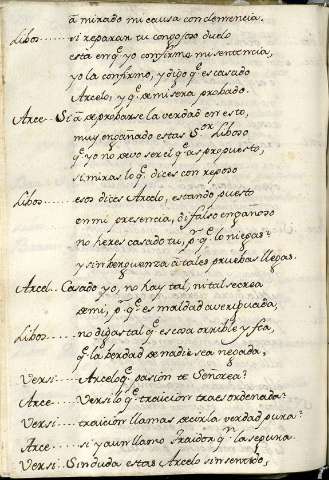 a mirado mi causa con clemencia.
Liboso..... si reparan tu congojoso duelo
esta en q̃ yo confirme mi sentencia,
yo la confirmo, y digo q̃ es casado
Arcelo, y q̃ de mi sera probado.
Arce... Si a de probarse la verdad en esto,
muy engañado estas S.or Liboso
q̃ yo no devo ser el q̃ as propuesto,
si miras lo q̃ dices con reposo
Libos...... esos dices Arcelo, estando puesto
en mi presencia, di falso engañoso
no heres casado tu, p.r q̃ lo niegas?
y sin berguenza a tales pruebas llegas.
Arcel.. Casado yo, no hay tal, ni tal se crea
de mi, p.r q̃ es maldad averiguada,
Libos...... no digas tal q̃ es cosa orrible y fea,
q̃ la berdad de nadie sea negada,
Versi..... Arcelo q̃ pasion te señorea?
Arce.... Versi lo q̃ traicion traes ordenada?
Versi..... traicion llamas decir la verdad pura?
Arce..... si y aun llamo traidor q.n la sepura.
Versi.. Sin duda estas Arcelo sin sentido,